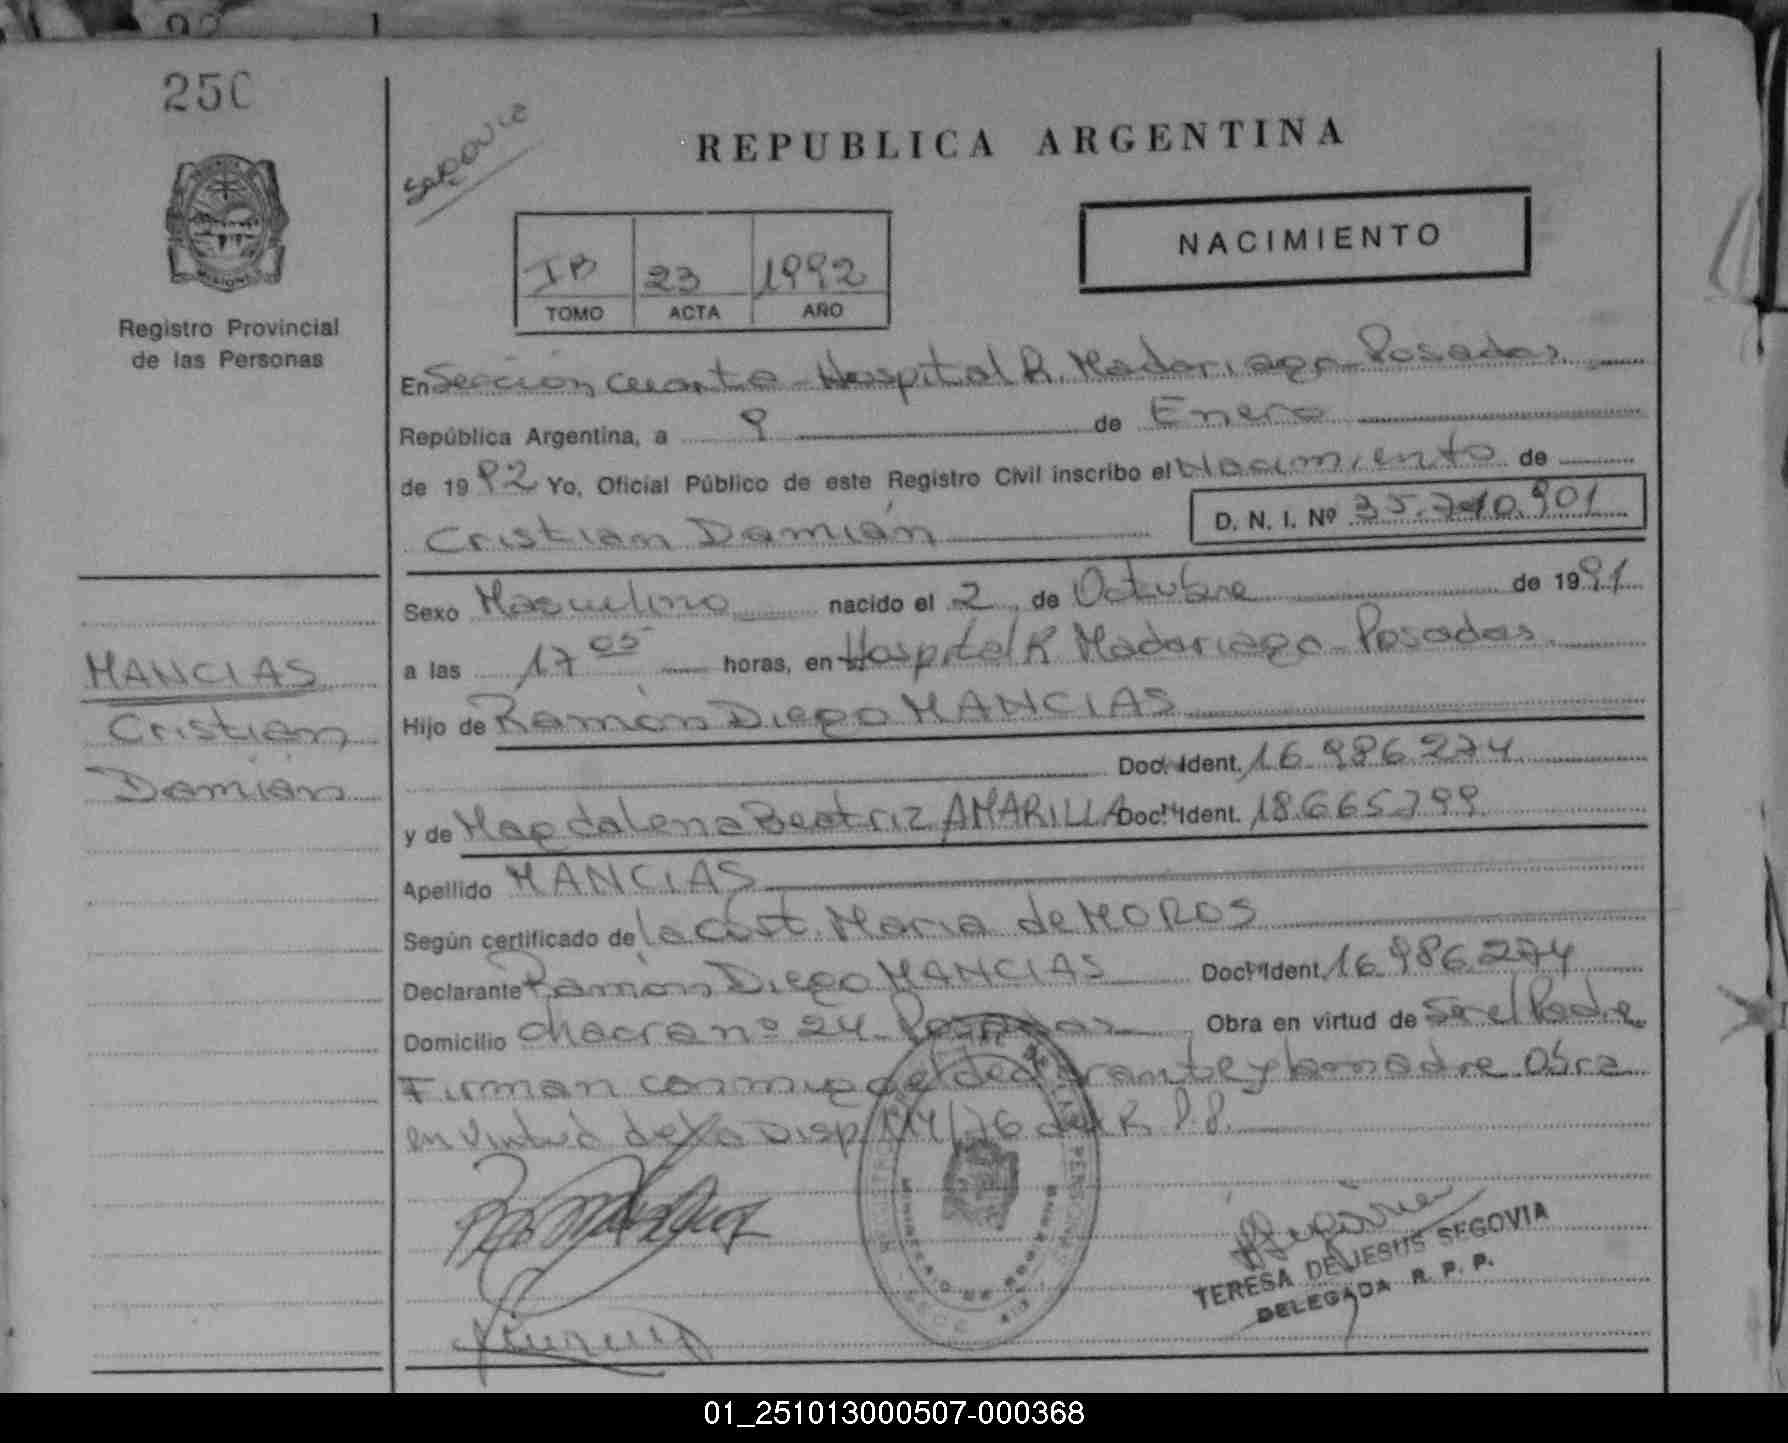 250
SAROVIE
REPUBLICA ARGENTINA
NACIMIENTO
IB 23 1992
TOMO ACTA AÑO
Registro Provincial
de las Personas
En Sección cuarta - Hospital R. Madariaga - Posadas
República Argentina, a 9 de Enero
de 1992 Yo, Oficial Público de este Registro Civil inscribo el Nacimiento de
Cristian Damián D. N. I. Nº 35.710.901
Sexo Masculino nacido el 2 de Octubre de 1991
a las 17 05 horas, en Hospital R Madariaga - Posadas
Hijo de Ramón Diego MANCIAS
Doc. Ident. 16.986.274
y de Magdalena Beatriz AMARILLA Doc. Ident. 18.665.799
Apellido MANCIAS
Según certificado de la Obst. Maria de MOROS
Declarante Ramón Diego MANCIAS Doc. Ident. 16.986.274
Domicilio Chacra nº 24 Posadas Obra en virtud de Ser el Padre
Firman conmigo el declarante y la madre Obra
en virtud de la Disp. 114/76 del R.P.P.
MANCIAS
Cristian
Damián
TERESA DE JESUS SEGOVIA
DELEGADA R. P. P.
01_251013000507-000368